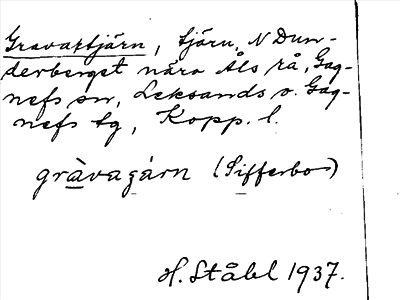 Gravatjärn, tjärn, N Dun-
derberget nära Åls rå, Gag-
nefs sn, Leksands o. Gag-
nefs tg, Kopp. l.
gràvaʒárn (Sifferbo)
H. Ståhl 1937.